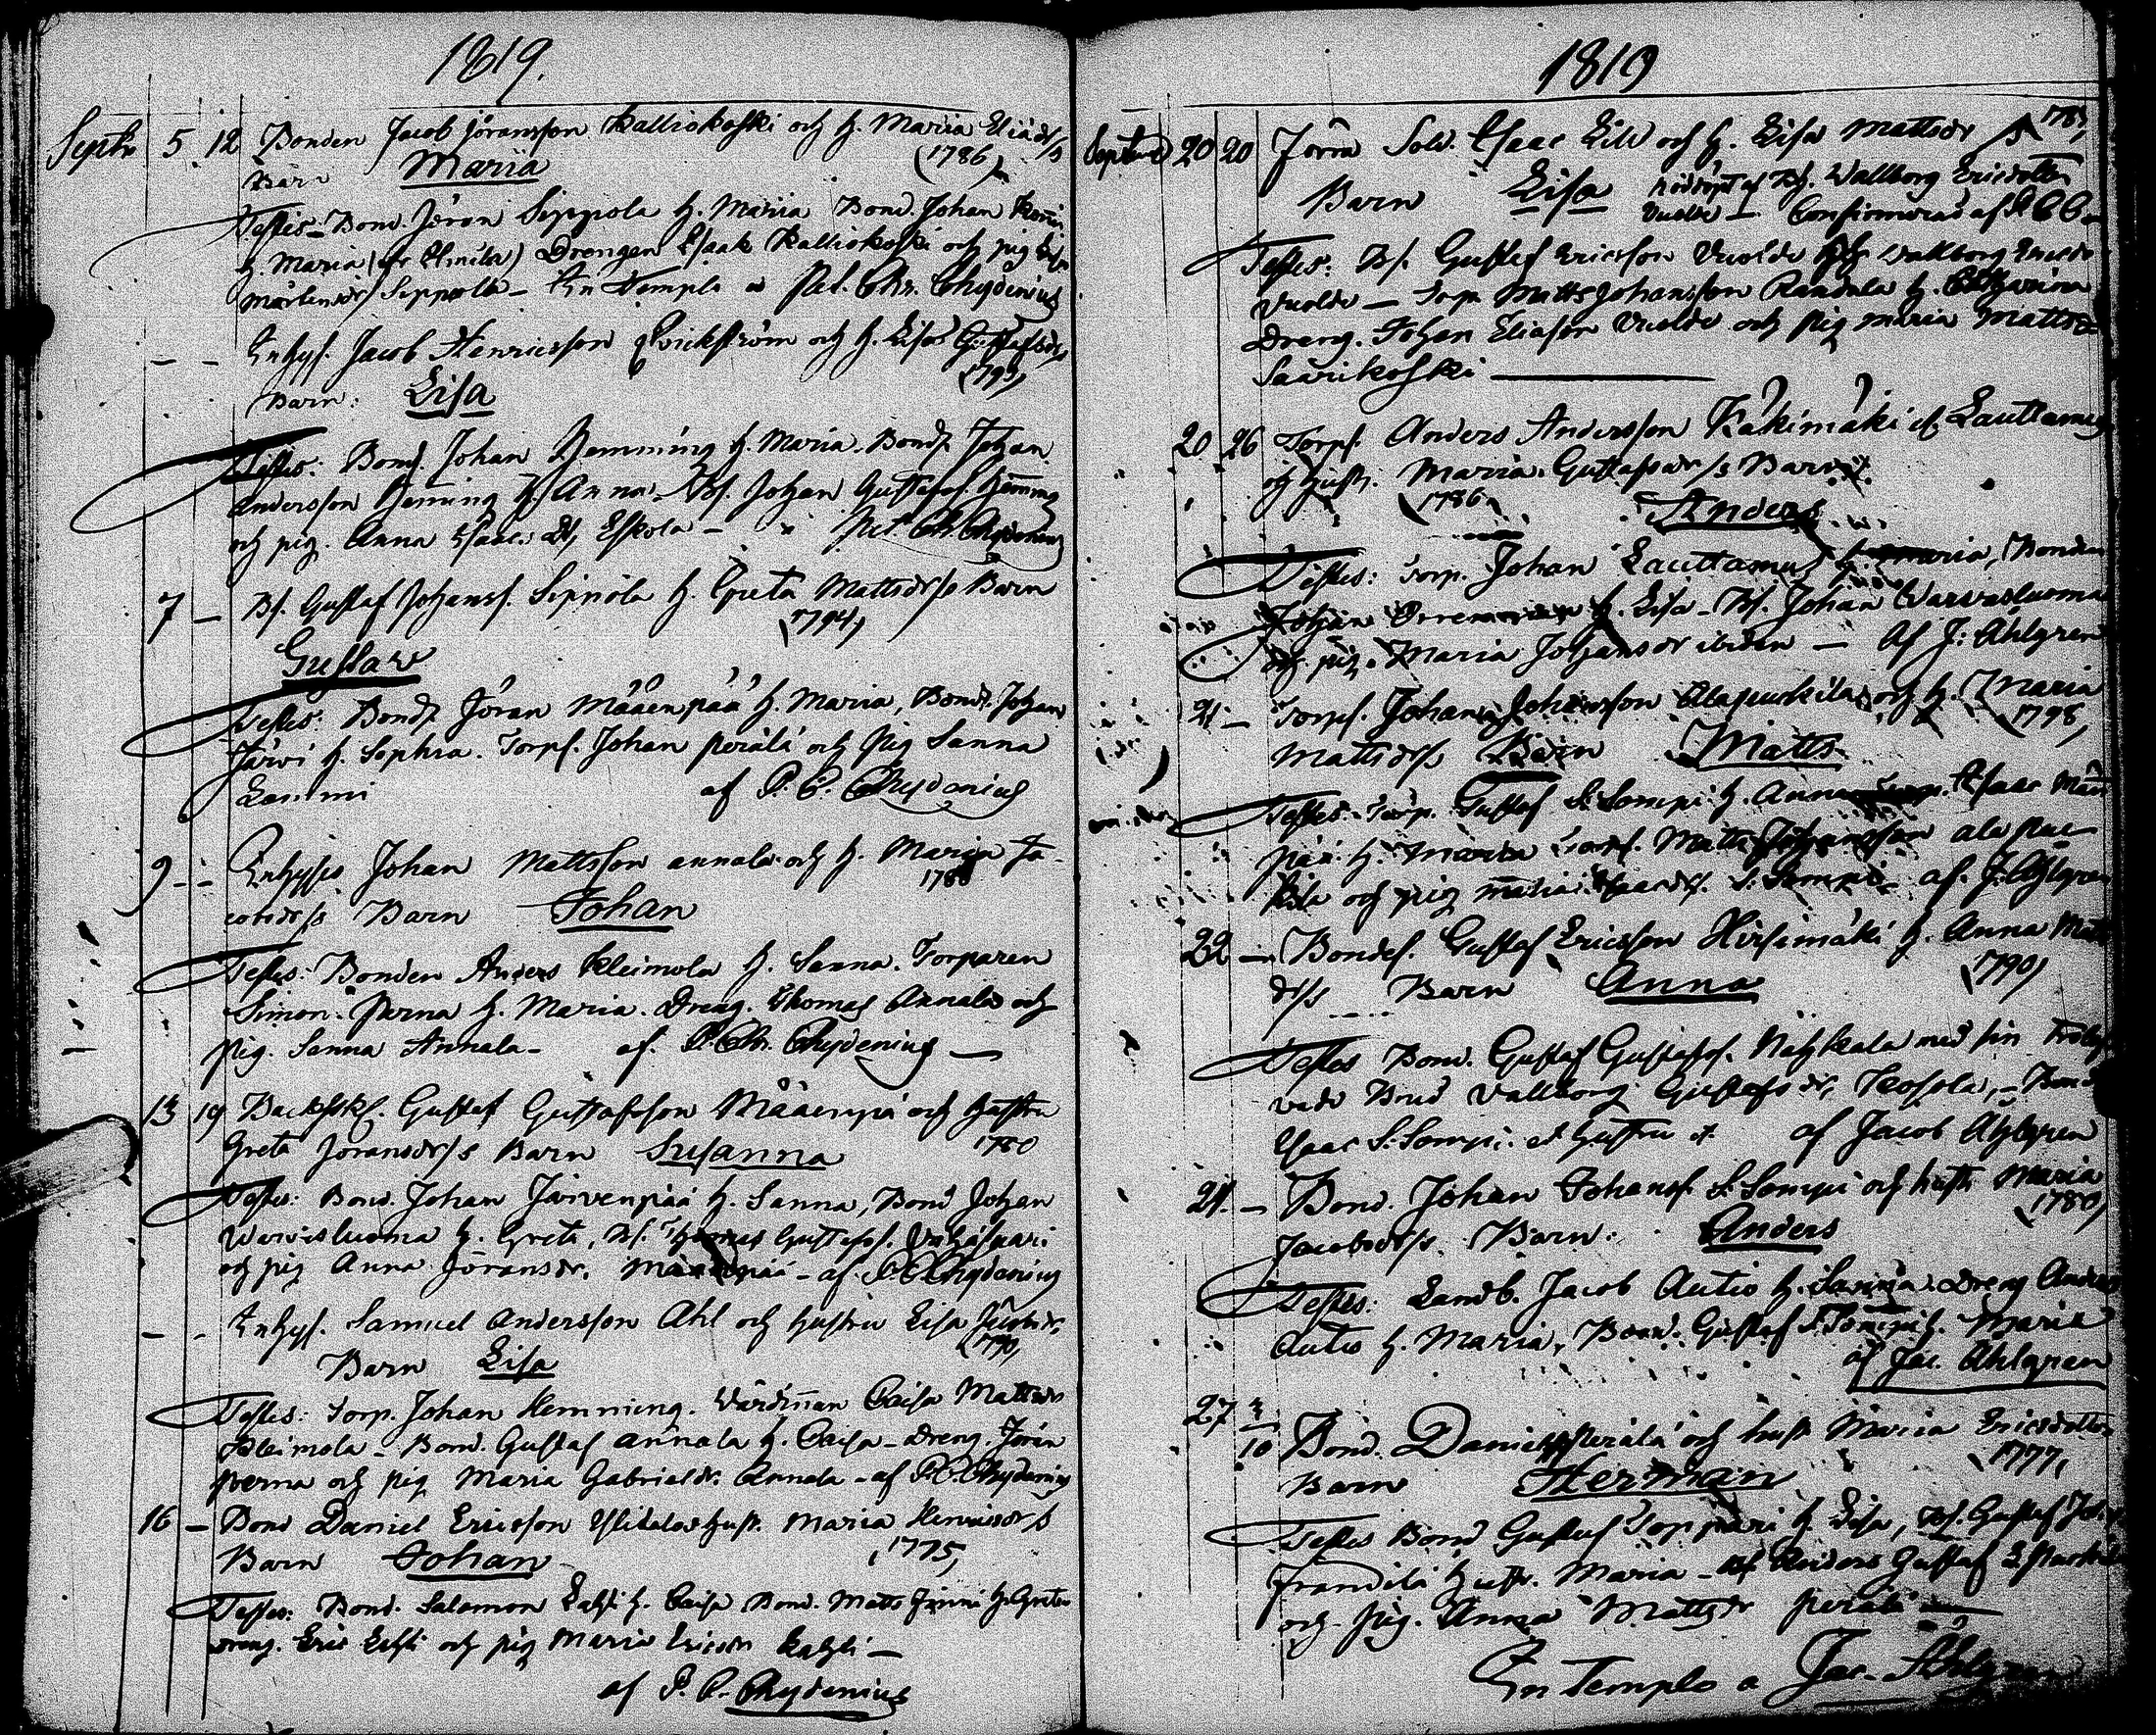 1819.
Septbr 5 12 Bonden Jacob Jöransson Kalliokoski och h. Maria Eliædr/s
Barn Maria (1786)
Testes Bond. Jöran Seppola h. Maria Bond. Johan
h. Maria Drengen Esaak Kalliokoski och pig
Mårtensdr Seppola - In Templo a Pet. Chr. Chydenius
- - Inhys. Jacob Henricsson Qvickström och h. Lisa Gustafsdr
Barn: Lisa (1793)
Testes: Bond. Johan Hemming h. Maria. Bond. Johan
Andersson Hemming h. Anna Bs. Johan Gustafss. Hemming
och pig. Anna Esaacs Dr, Eskola - Pet. Ch. Chydenius
7 - Bs. Gustaf Johanss. Sippola h. Greta Mattsdr/s Barn
Gustav (1794)
Testes: Bond. Jöran Määenpää h. Maria, Bond. Johan
Järvi h. Sophia. Torps. Johan Perälä och pig Sanna
Lammi af P. C. Chydenius
9 - - Inhyses Johan Mattsson Annala och h. Maria Ja-
cobsdr/s Barn Johan 1788
Testes: Bonden Anders Kleimola h. Sanna. Torparen
Simon Perna h. Maria. Dreng. Thomas Annala och
pig. Sanna Annala - af. P. Chr. Chydenius -
13 19 Backstks. Gustaf Gustafsson Määenpä och hustru
Greta Jöransdr/s Barn Susanna 1780
Testes: Bond. Johan Järvenpää h. Sanna, Bond Johan
Warvisluoma h. Greta, Bs. Thomas Gustafss.
och pig Anna Jöransdr. Määenpää - af P. C. Chydenius
- - Inhys. Samuel Andersson Ahl och hustru Lisa Jacobsdr,
Barn Lisa (1790)
Testes: Torp. Johan Hemming. Caisa Mattsdr
Kleimola - Bond. Gustaf Annala h. Caisa - Dreng. Jöran
Perna och pig Maria Gabrielsdr. Annala - af P. C. Chydenius
16 - Bond Daniel Ericsson Ylitalo hust. Maria Henricsdr/s
Barn Johan (1775)
Testes: Bond. Salomon Lahti h. Caisa Bond. Matts h. Greta
dreng. Eric Lahti och pig Maria Ericsdr Lahti -
af P. C. Chydenius
1819
Septbr 20 20 Förra Sold. Esaac Lill och h. Lisa Mattsdr/s 1783
Barn Lisa nöddöpt af Bh. Wallborg Ericsdotter
Vuolde - Confirmerad af P C C
Testes: Bs. Gustaf Ericsson Vuolde Bh. Wallborg Ericsdr
Vuolde - Torp. Matts Johansson Randala h. Catharina
Dreng. Johan Eliasson Vuolde och pig Maria Mattsdr
Saarikoski
20 26 Torps. Anders Andersson Käkimäki el. Lauttamus
och hust. Maria Gustafsdr/s Barn
(1786) Anders
Testes: Torp. Johan Lauttamus h. Maria, Bonden
Johan h. Lisa - Bs. Johan Warvisluoma
och pig. Maria Johansdr ibidem - Af J: Ahlgren
21 - Torps. Johan Johansson Alapuskila och h. Maria
Mattsdr/s Barn Matts (1798)
Testes: Torp. Gustaf S. Sompi h. Anna Torp. Esaac Mää
pää h. Maria Torps. Matts Johansson Alapus-
kila och pig Maria Esaacsdr. S. Sompi af. J. Ahlgren
22 - Bondes. Gustaf Ericsson Hirsimäki h. Anna Matts
dr/s Barn Anna (1790)
Testes Bond. Gustaf Gustafss. Näykala med sin trolof-
vade Brud Vallborg Gustafsdr, Kossola, - Bond
Esaac S. Sompi et hustru et. af Jacob Ahlgren
24. - Bond. Johan Johanss. S. Sompi och hustr Maria
Jacobsdr/s. Barn: Anders (1780)
Testes: Landb. Jacob Autio h. Sanna. Dreng Anders
Autio h. Maria, Bond. Gustaf S. Sompi h. Maria
af Jac. Ahlgren
27 3/10 Bond. Daniel Perälä och hust Maria Ericsdotter
Barn Herman (1777)
Testes Bond Gustaf Toppari h. Lisa, Bs. Gustaf
Frandilä hustr. Maria - Bs Anders Gustaf
och pig. Anna Mattsdr Perälä
In Templo a Jac. Ahlgren